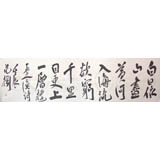 白日依
山盡
黃河
入海流
欲窮
千里
目更上
一層樓